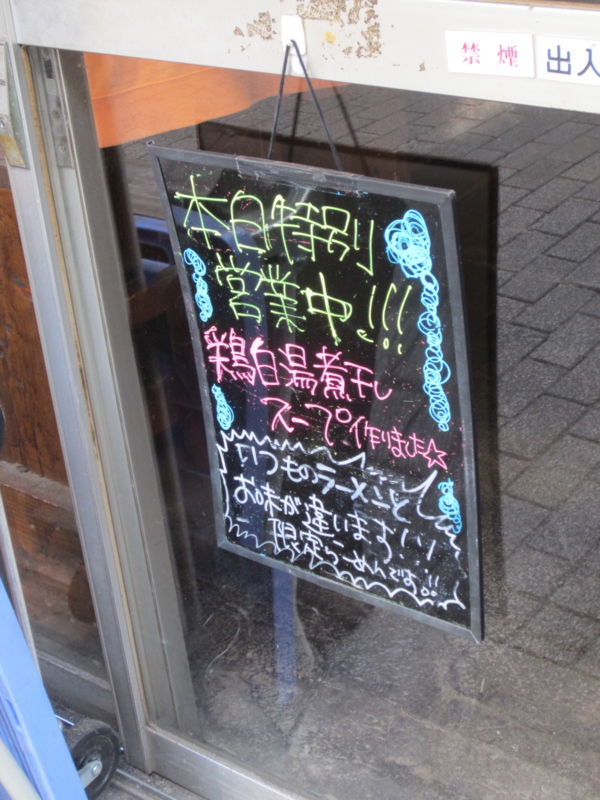 禁煙
出入
本日特別
営業中!!!
鶏白湯煮干し
スープ作りました☆
いつものラーメンと
お味が違います!!!
限定らーめんです!!